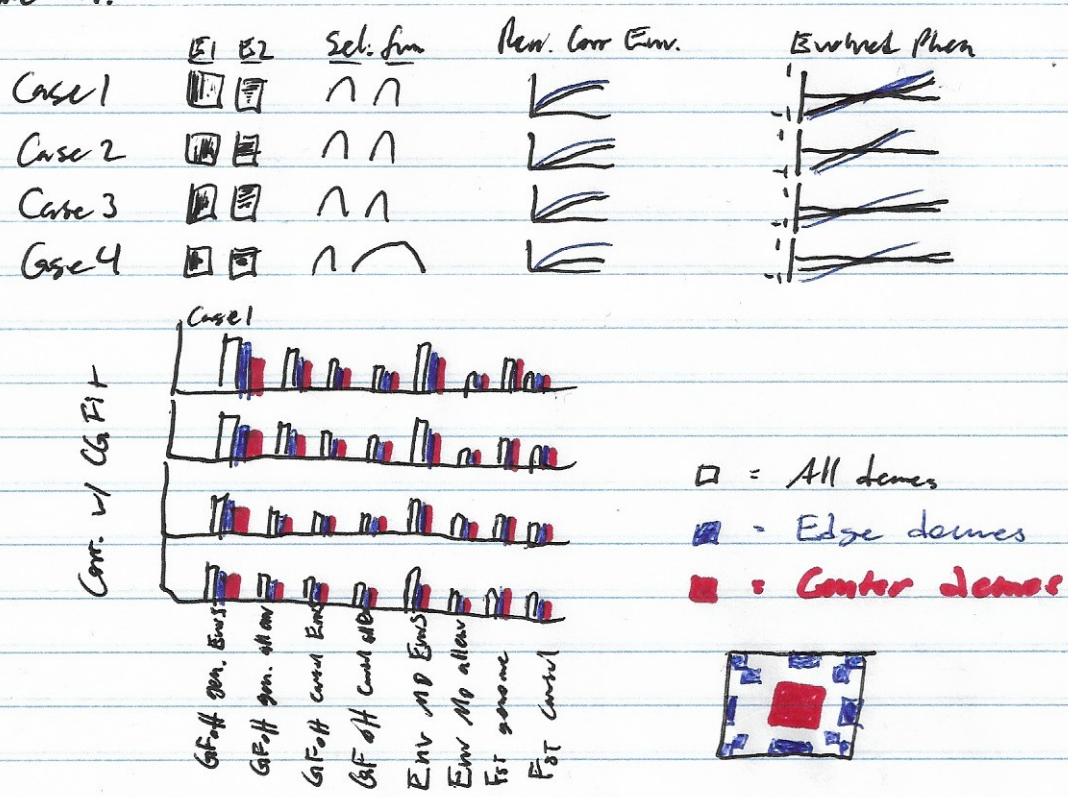 E1 E2 Sel. fun Rew. Corr Env. Evolved Phen
Case 1
Case 2
Case 3
Case 4
1
-1
1
-1
1
-1
1
-1
Case 1
Corr. w/ CG Fit
GFoff gen. Envs
GFoff gen. all env
GFoff causal Envs
GFoff causal all env
Env MD Envs
Env MD all env
FST genome
FST causal
= All demes
= Edge demes
= Center demes